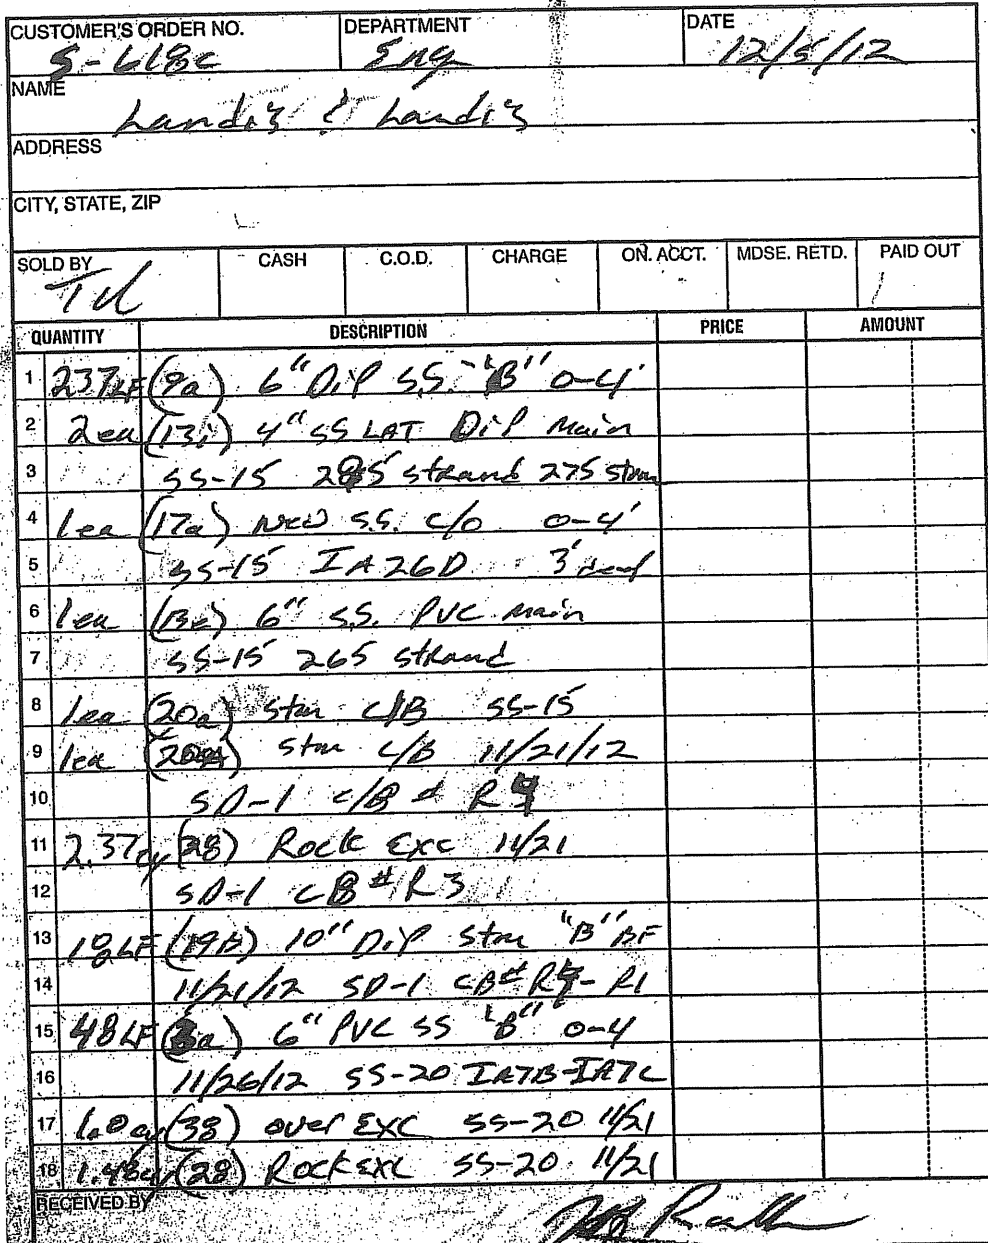 CUSTOMER'S ORDER NO. DEPARTMENT DATE
S-618c Eng 12/5/12
NAME
Landis & Landis
ADDRESS
CITY, STATE, ZIP
SOLD BY CASH C.O.D. CHARGE ON. ACCT. MDSE. RETD. PAID OUT
QUANTITY DESCRIPTION PRICE AMOUNT
1 237LF (9a) 6" DIP S.S. "B" 0-4'
2 2ea (13i) 4" SS LAT DIP Main
3 SS-15 285 Strand 275 Stran
4 1ea (17a) New S.S. C/O 0-4'
5 SS-15 IA26D 3' deep
6 1ea (13e) 6" S.S. PVC Main
7 SS-15 265 Strand
8 1ea (20a) Stm C/B SS-15
9 1ea Stm C/B 11/21/12
10 SD-1 C/B # R4
11 2.37cy (28) Rock Exc 11/21
12 SD-1 CB # R3
13 18LF (19B) 10" DIP Stm "B" BF
14 11/21/12 SD-1 CB# R4-R1
15 48LF 6" PVC SS "B" 0-4
16 11/26/12 SS-20 IA7B-IA7C
17 1.0cy (38) over Exc SS-20 11/21
18 1.48cy (28) Rock Exc SS-20 11/21
RECEIVED BY